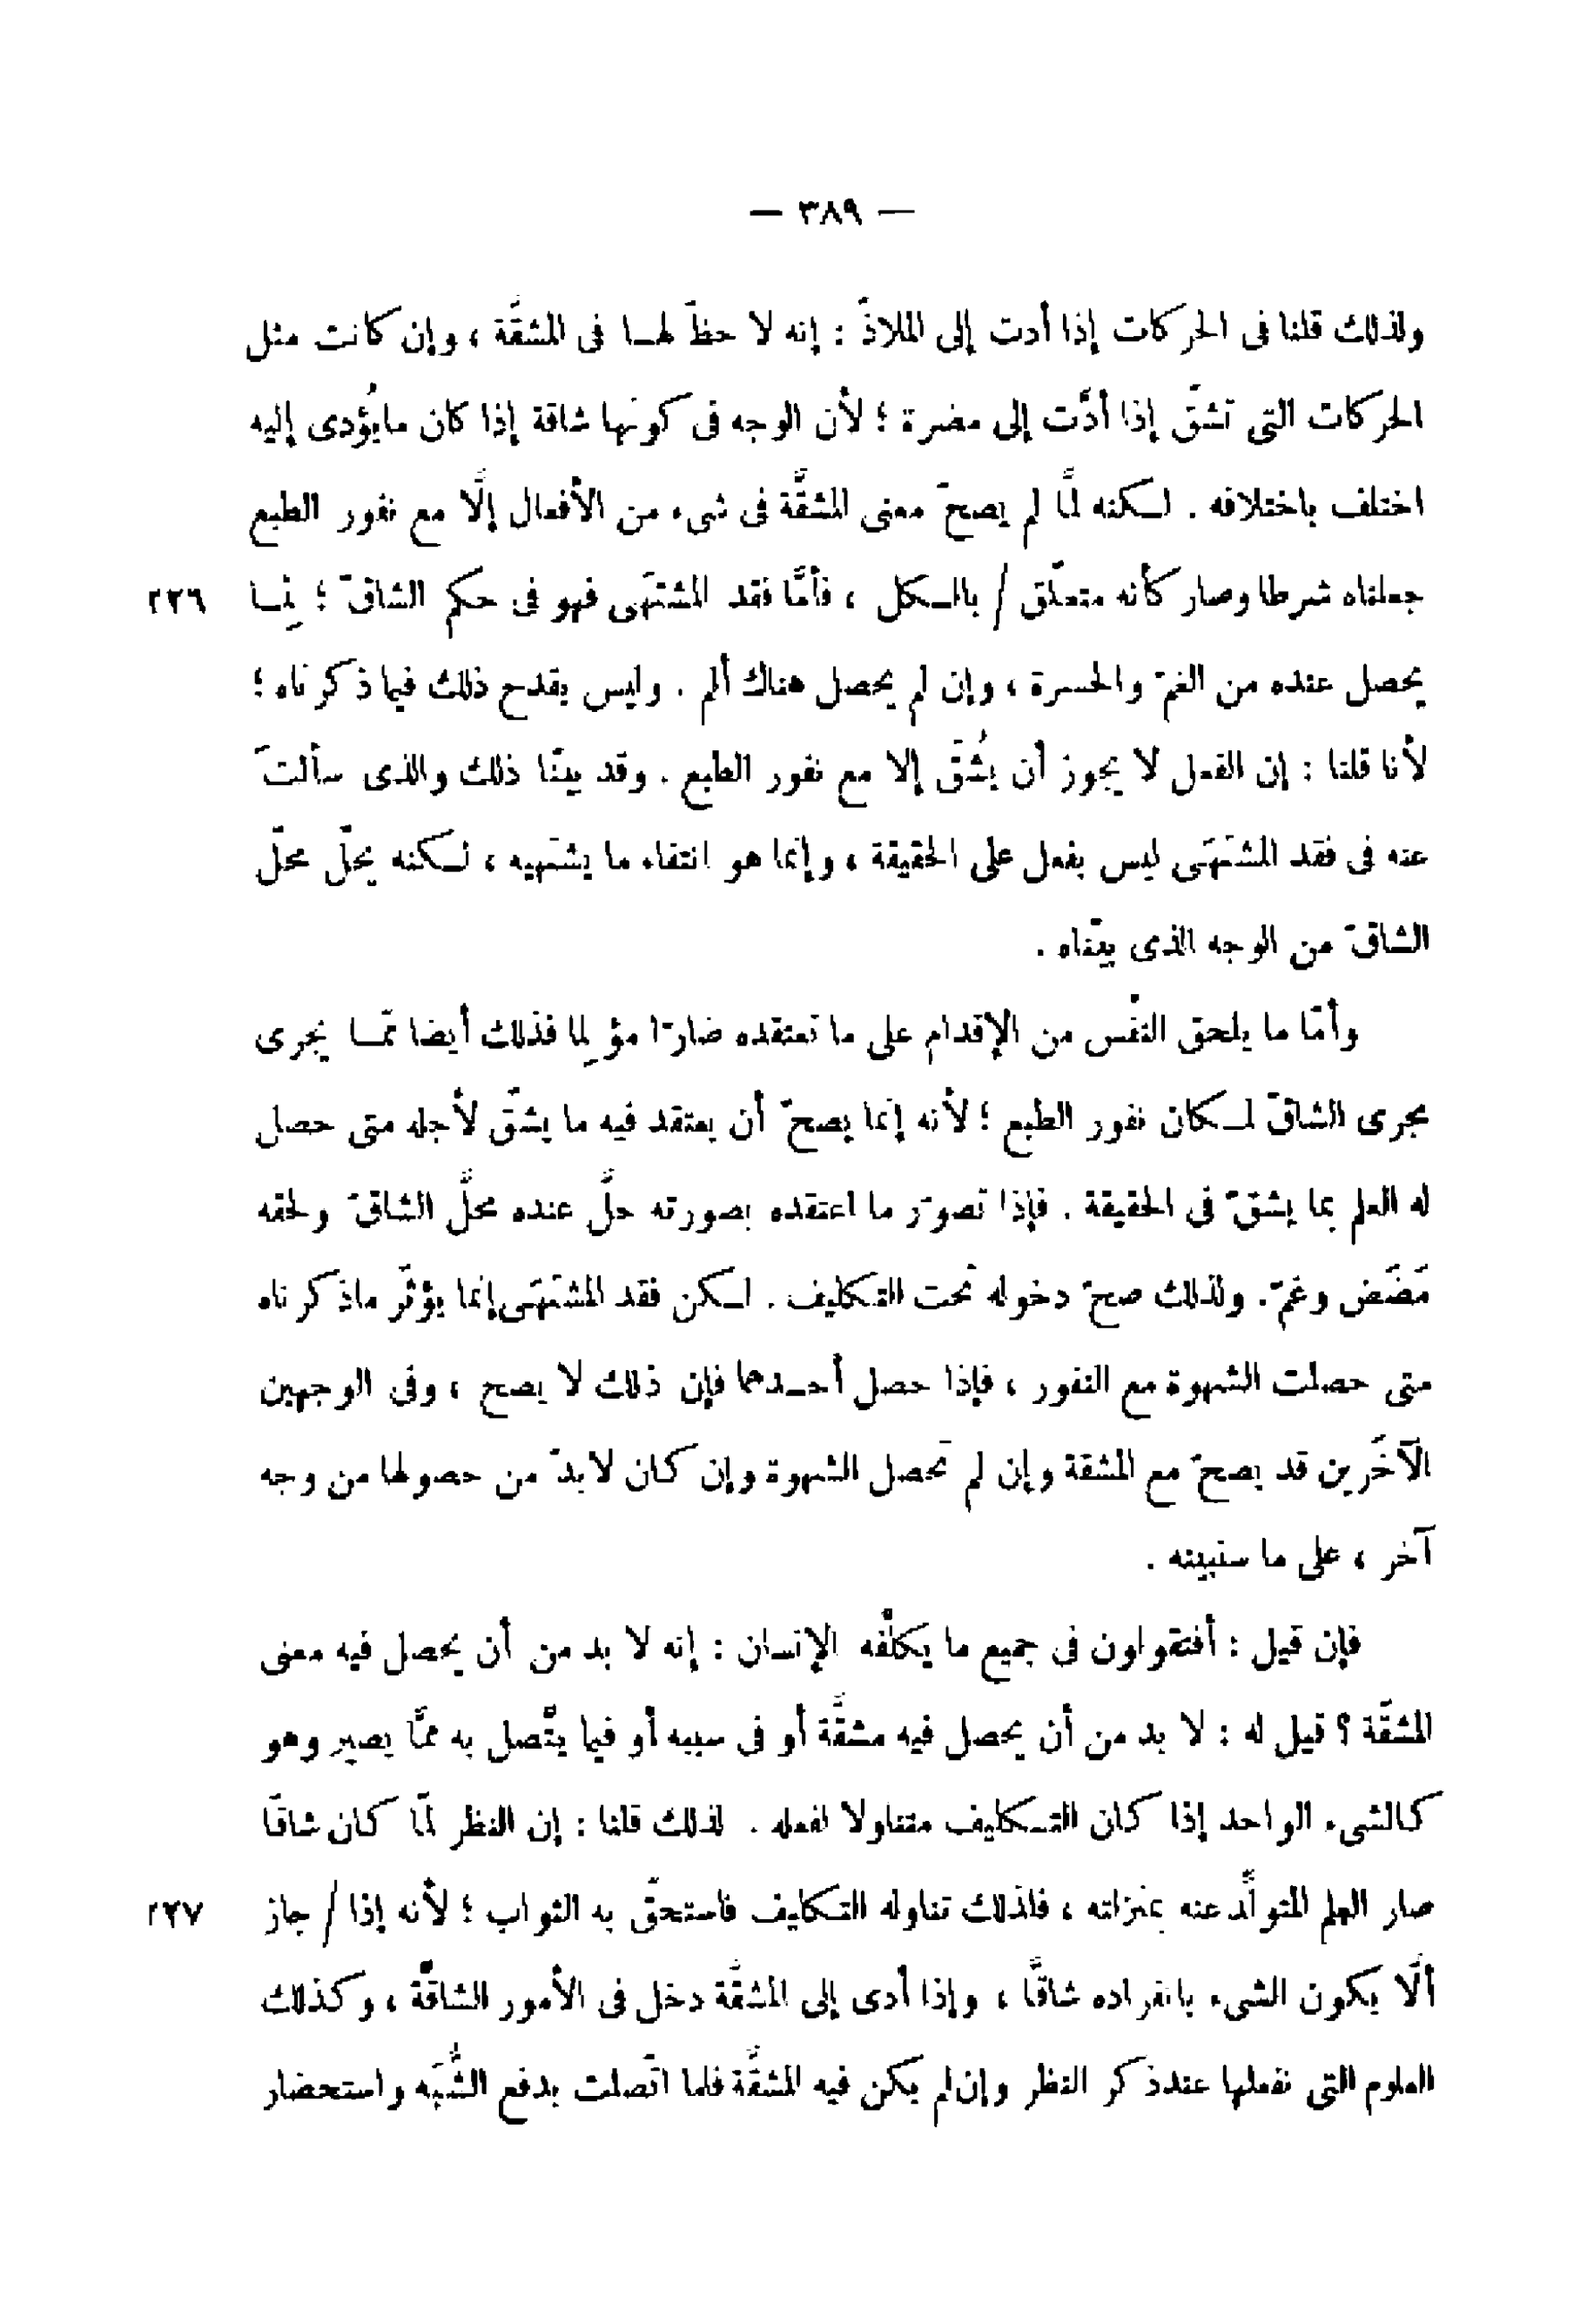 — ٣٨٩ —
ولذلك قلنا فى الحركات إذا أدت إلى الملاذّ : إنه لا حظّ لهـا فى المشقَّة ، وإن كانت مثل
الحركات التى تشقّ إذا أدَّت إلى مضرة ؛ لأن الوجه فى كونها شاقة إذا كان مايُؤدى إليه
اختلف باختلافه . لـكنه لمَّا لم يصحّ معنى المشقَّة فى شىء من الأفعال إلَّا مع نفور الطبع
جعلناه شرطا وصار كأنه متعلّق / بالـكل ، فأمَّا فقد المشتَهَى فهو فى حكم الشاقّ ؛ لِمـا ٢٢٦
يحصل عنده من الغمّ والحسرة ، وإن لم يحصل هناك ألم . وليس يقدح ذلك فيما ذكرناه ؛
لأنا قلنا : إن الفعل لا يجوز أن يُشَقّ إلا مع نفور الطبع . وقد بينّا ذلك والذى سألتَ
عنه فى فقد المشتَهَى ليس بفعل على الحقيقة ، وإنما هو انتفاء ما يشتهيه ، لـكنه يحلّ محلّ
الشاقّ من الوجه الذى بينّاه .
وأمّا ما يلحق النفْس من الإقدام على ما تعتقده ضارّا مؤلِما فذلك أيضا ممّـا يجرى
مجرى الشاقّ لـكان نفور الطبع ؛ لأنه إنما يصحّ أن يعتقد فيه ما يشقّ لأجله متى حصل
له العلم بما يشقّ فى الحقيقة . فإذا تصوّر ما اعتقده بصورته حلَّ عنده محلَّ الشاقّ ولحقه
مَضَض وغمّ. ولذلك صحّ دخوله تحت التكليف . لـكن فقد المشتَهَى إنما يؤثّر ماذكرناه
متى حصلت الشهوة مع النفور ، فإذا حصل أحـدهما فإن ذلك لا يصح ، وفى الوجهين
الآخَرين قد يصحّ مع المشقة وإن لم تحصل الشهوة وإن كان لابدّ من حصولها من وجه
آخر ، على ما سنبينه .
فإن قيل : أفتقولون فى جميع ما يكلَّفه الإنسان : إنه لا بد من أن يحصل فيه معنى
المشقّة ؟ قيل له : لا بد من أن يحصل فيه مشقَّة أو فى سببه أو فيما يتَّصل به ممَّا يصير وهو
كالشىء الواحد إذا كان التـكليف متناولا لفعله . لذلك قلنا : إن النظر لمّا كان شاقّا
صار العلم المتولَّد عنه بمنزلته ، فلذلك تناوله التكليف فاستحقّ به الثواب ؛ لأنه إذا / جاز ٢٢٧
ألَّا يكون الشىء بانفراده شاقَّا ، وإذا أدى إلى المشقَّة دخل فى الأمور الشاقَّة ، وكذلك
العلوم التى نفعلها عندذكر النظر وإن لم يكن فيه المشقَّة فلما اتّصلت بدفع الشُّبَه واستحضار